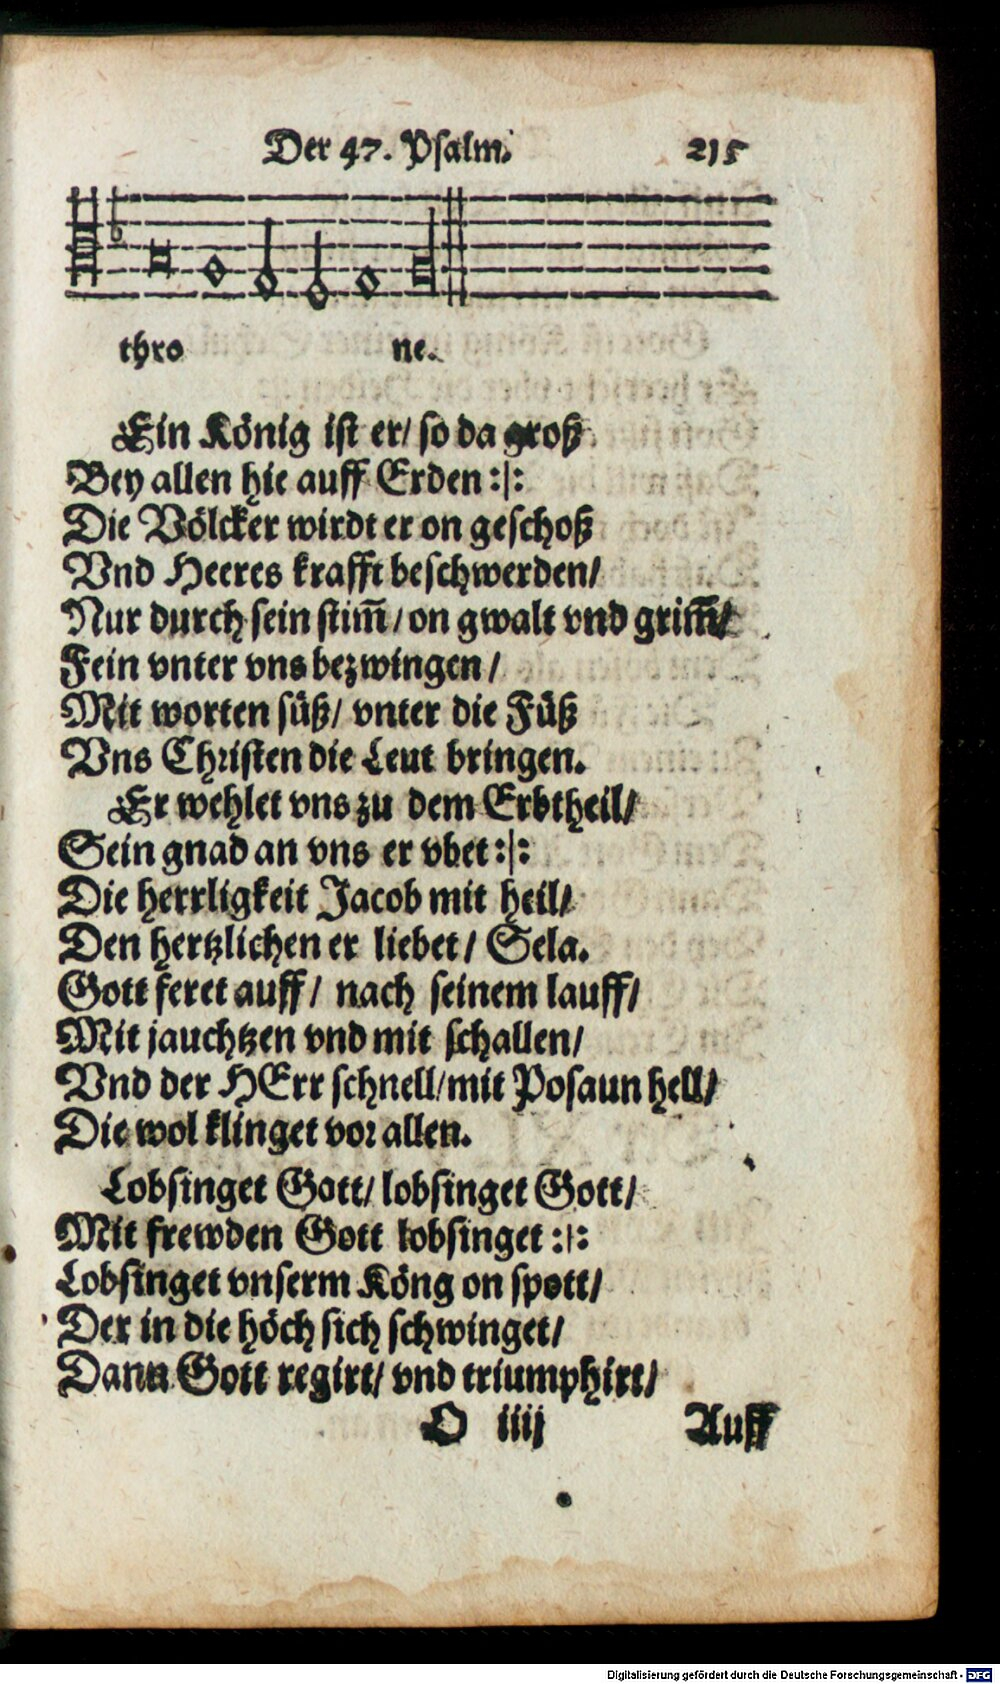 Der 47. Psalm. 215
thro ne.
Ein König ist er/ so da groß
Bey allen hie auff Erden :|:
Die Völcker wirdt er on geschoß
Vnd Heeres krafft beschwerden/
Nur durch sein stim̃/ on gwalt vnd grim̃/
Fein vnter vns bezwingen/
Mit worten süß/ vnter die Füß
Vns Christen die Leut bringen.
Er wehlet vns zu dem Erbtheil/
Sein gnad an vns er vbet :|:
Die herrligkeit Jacob mit heil/
Den hertzlichen er liebet/ Sela.
Gott feret auff/ nach seinem lauff/
Mit jauchtzen vnd mit schallen/
Vnd der HErr schnell/ mit Posaun hell/
Die wol klinget vor allen.
Lobsinget Gott/ lobsinget Gott/
Mit frewden Gott lobsinget :|:
Lobsinget vnserm Köng on spott/
Der in die höch sich schwinget/
Dann Gott regirt/ vnd triumphirt/
O iiij Auff
Digitalisierung gefördert durch die Deutsche Forschungsgemeinschaft - DFG